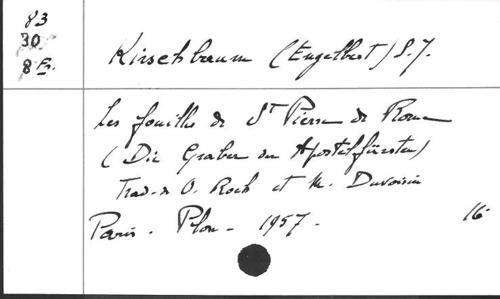 83
30
8 Fr.
Kirschbaum (Engelbert) S.J.
Les fouilles de St Pierre de Rome
(Die Gräber der Apostelfürsten)
Trad. de O. Roch et M. Duvoisin
Paris. Plon - 1957. 16